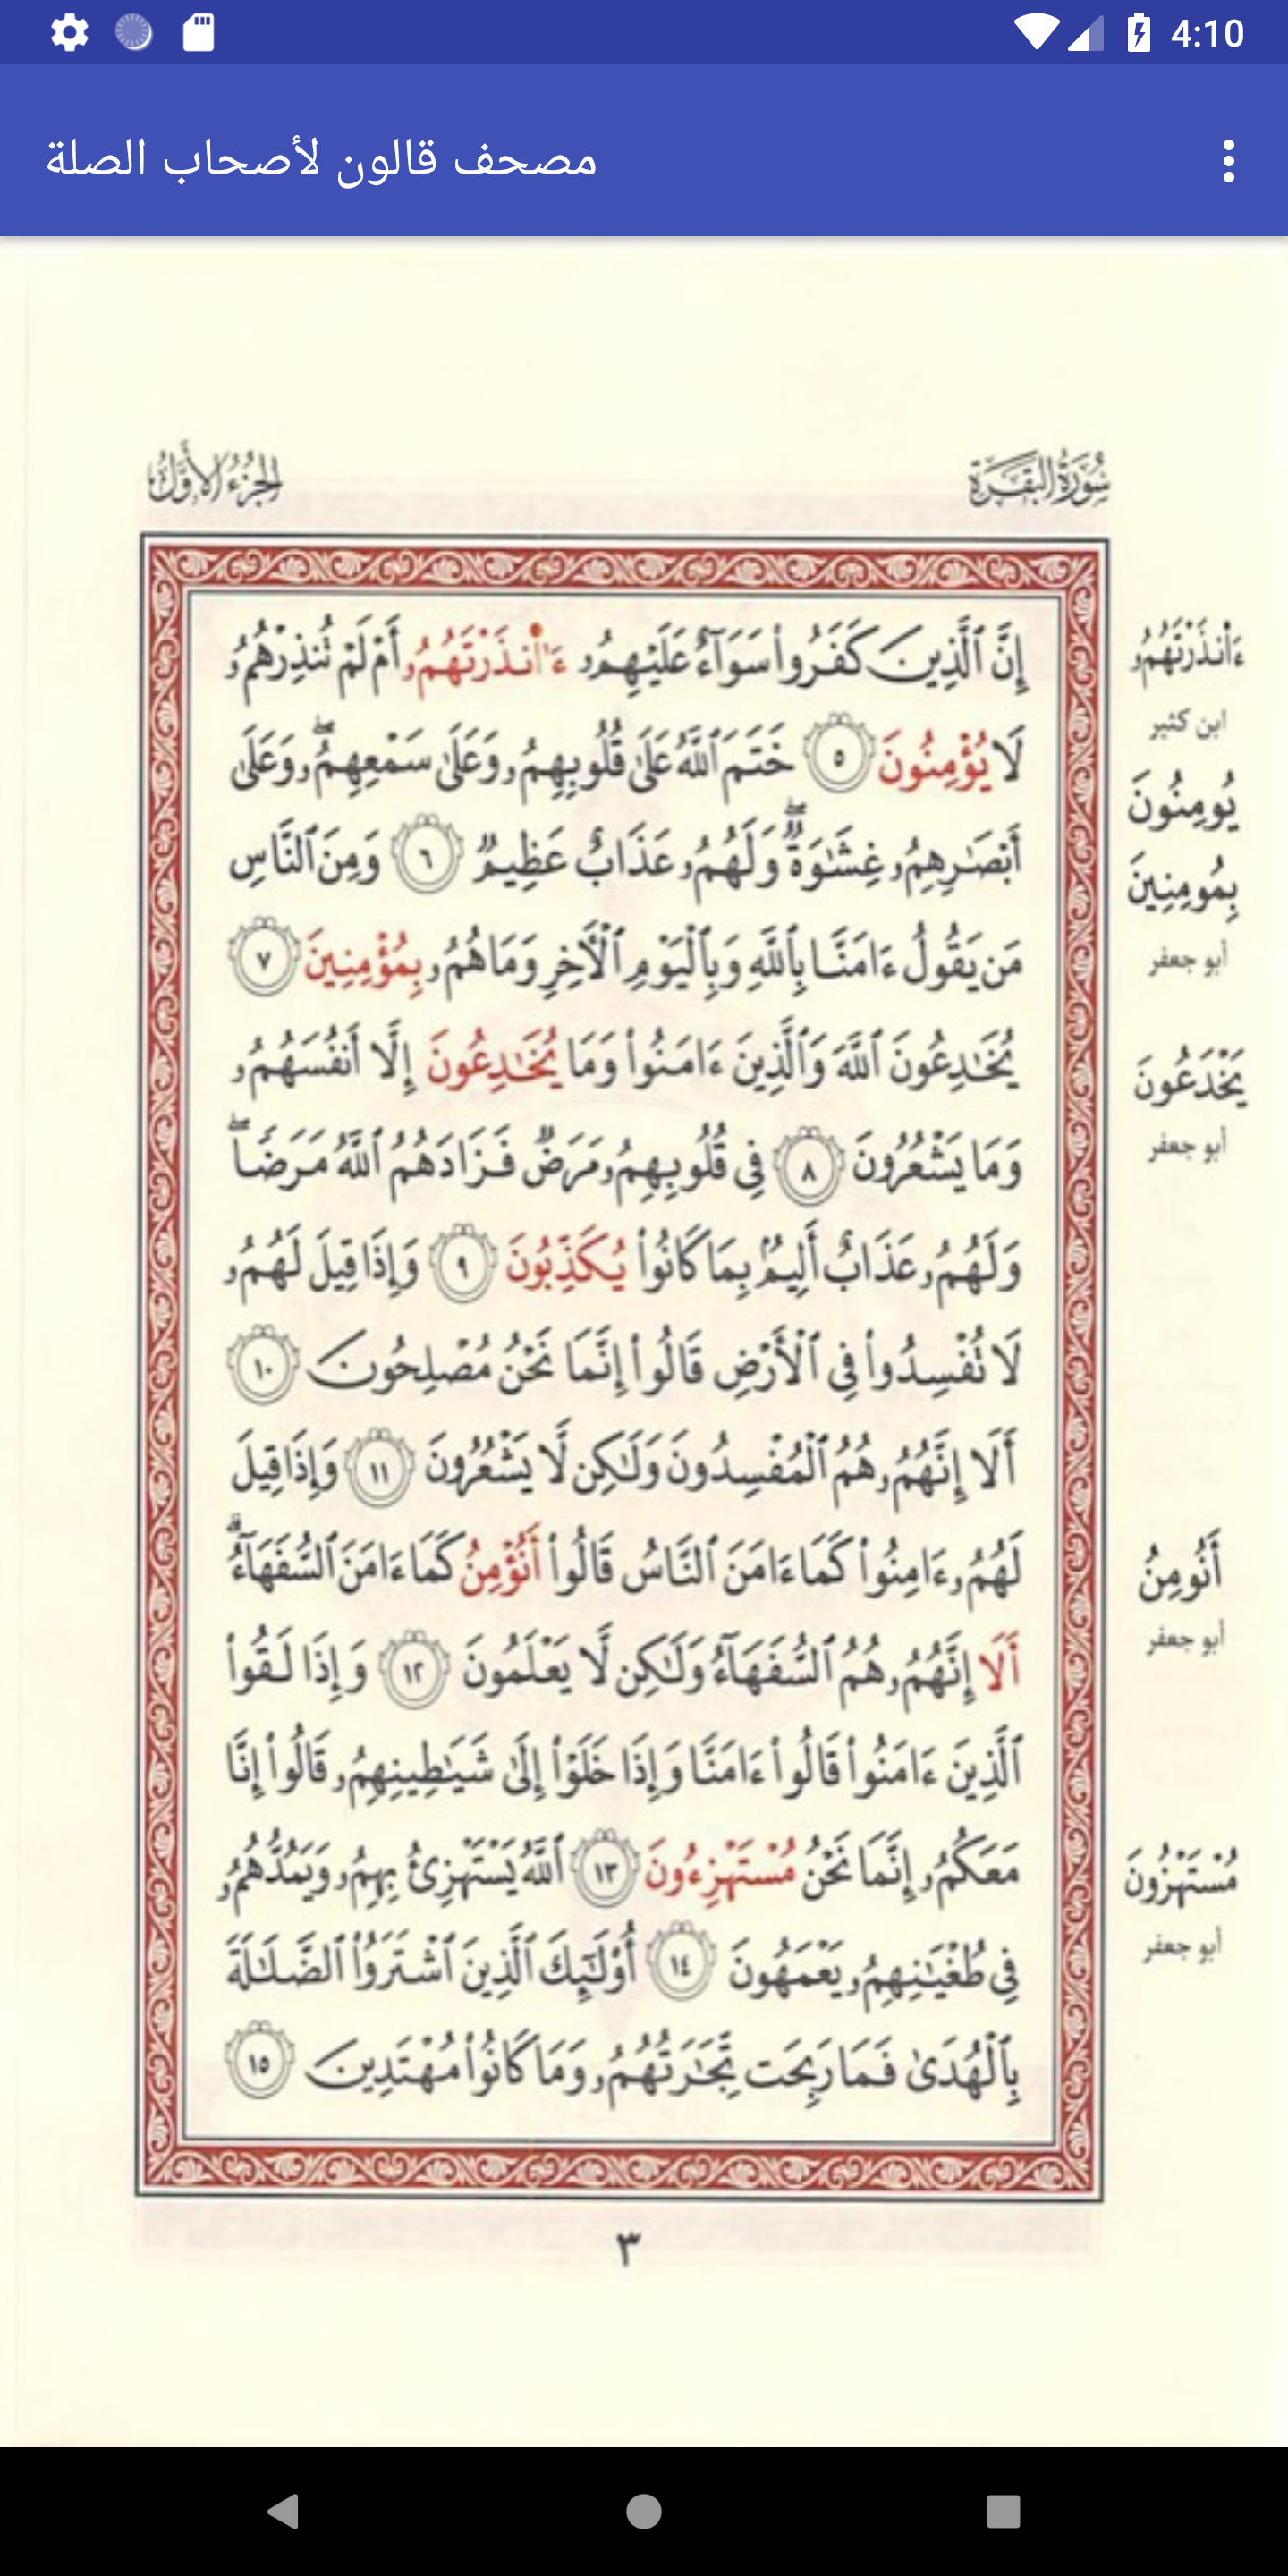 4:10
مصحف قالون لأصحاب الصلة
سُورَةُ الْبَقَرَةِ
الجُزْءُ الأَوَّلُ
إِنَّ ٱلَّذِينَ كَفَرُواْ سَوَآءٌ عَلَيْهِمُۥ ءَا۬نذَرْتَهُمُۥ أَمْ لَمْ تُنذِرْهُمُۥ
لَا يُؤْمِنُونَ ٥ خَتَمَ ٱللَّهُ عَلَىٰ قُلُوبِهِمُۥ وَعَلَىٰ سَمْعِهِمُۥۖ وَعَلَىٰ
أَبْصَٰرِهِمُۥ غِشَٰوَةٌۖ وَلَهُمُۥ عَذَابٌ عَظِيمٌ ٦ وَمِنَ ٱلنَّاسِ
مَن يَقُولُ ءَامَنَّا بِٱللَّهِ وَبِٱلْيَوْمِ ٱلْأٓخِرِ وَمَا هُمُۥ بِمُؤْمِنِينَ ٧
يُخَٰدِعُونَ ٱللَّهَ وَٱلَّذِينَ ءَامَنُواْ وَمَا يُخَٰدِعُونَ إِلَّا أَنفُسَهُمُۥ
وَمَا يَشْعُرُونَ ٨ فِي قُلُوبِهِمُۥ مَرَضٌ فَزَادَهُمُ ٱللَّهُ مَرَضاًۖ
وَلَهُمُۥ عَذَابٌ أَلِيمُۢ بِمَا كَانُواْ يُكَذِّبُونَ ٩ وَإِذَا قِيلَ لَهُمُۥ
لَا تُفْسِدُواْ فِي ٱلْأَرْضِ قَالُواْ إِنَّمَا نَحْنُ مُصْلِحُونَ ١٠
أَلَا إِنَّهُمُۥ هُمُ ٱلْمُفْسِدُونَ وَلَٰكِن لَّا يَشْعُرُونَ ١١ وَإِذَا قِيلَ
لَهُمُۥ ءَامِنُواْ كَمَا ءَامَنَ ٱلنَّاسُ قَالُواْ أَنُؤْمِنُ كَمَا ءَامَنَ ٱلسُّفَهَآءُۗ
أَلَا إِنَّهُمُۥ هُمُ ٱلسُّفَهَآءُ وَلَٰكِن لَّا يَعْلَمُونَ ١٢ وَإِذَا لَقُواْ
ٱلَّذِينَ ءَامَنُواْ قَالُواْ ءَامَنَّا وَإِذَا خَلَوْاْ إِلَىٰ شَيَٰطِينِهِمُۥ قَالُواْ إِنَّا
مَعَكُمُۥ إِنَّمَا نَحْنُ مُسْتَهْزِءُونَ ١٣ ٱللَّهُ يَسْتَهْزِئُ بِهِمُۥ وَيَمُدُّهُمُۥ
فِي طُغْيَٰنِهِمُۥ يَعْمَهُونَ ١٤ أُوْلَٰٓئِكَ ٱلَّذِينَ ٱشْتَرَوُاْ ٱلضَّلَٰلَةَ
بِٱلْهُدَىٰ فَمَا رَبِحَت تِّجَٰرَتُهُمُۥ وَمَا كَانُواْ مُهْتَدِينَ ١٥
ءَا۬نذَرْتَهُمُۥ
ابن كثير
يُومِنُونَ
بِمُومِنِينَ
أبو جعفر
يَخْدَعُونَ
أبو جعفر
أَنُومِنُ
أبو جعفر
مُسْتَهْزُونَ
أبو جعفر
٣